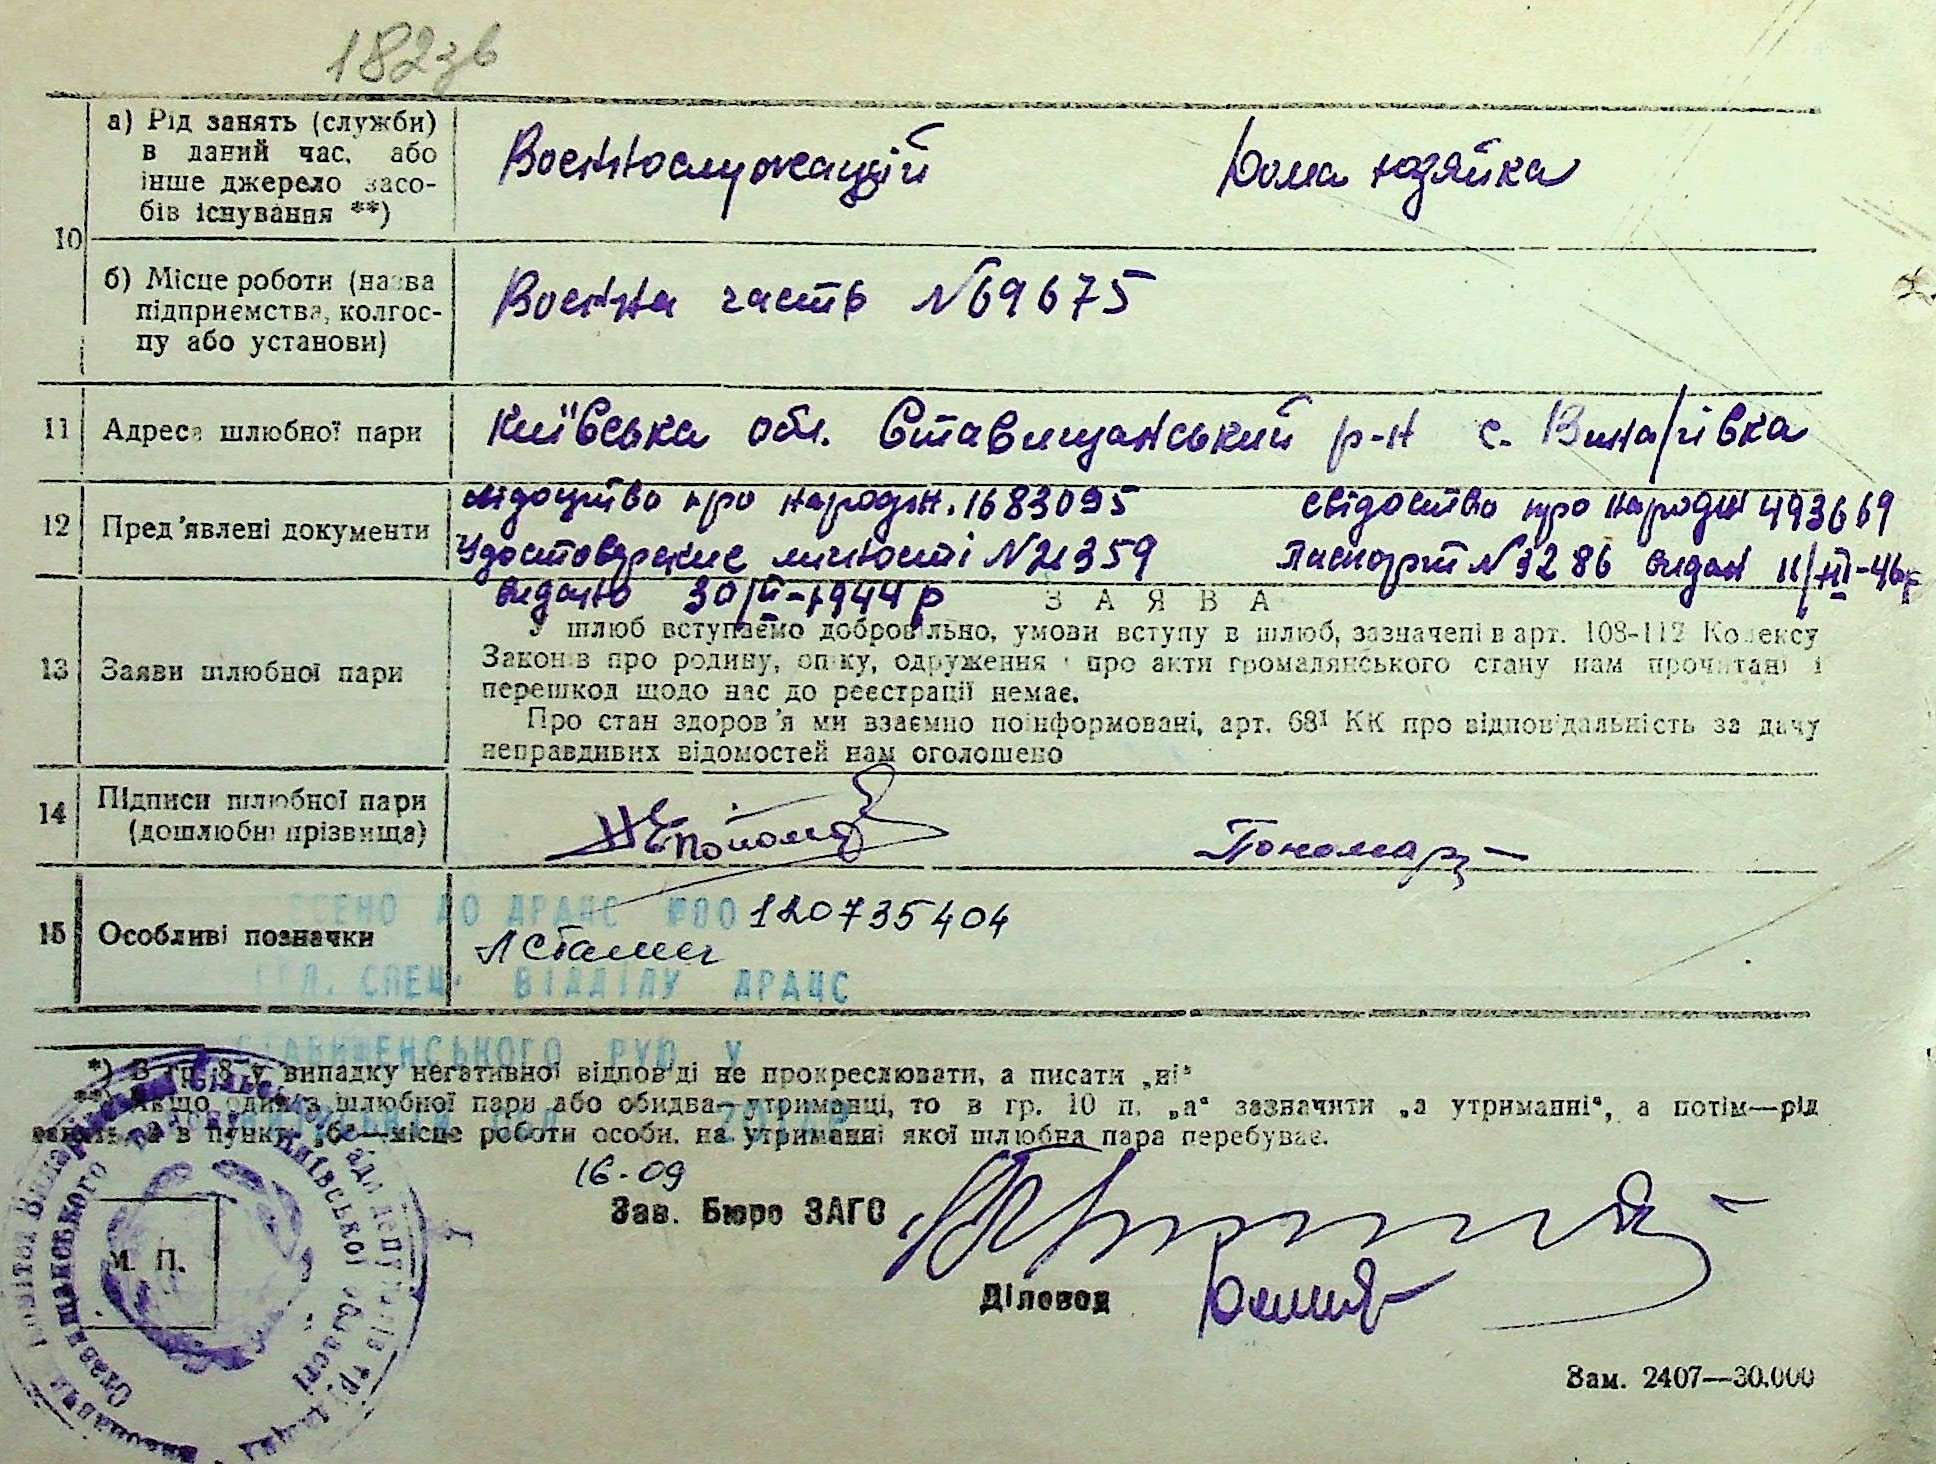 182зв
а) Рід занять (служби)
в даний час, або
інше джерело засо-
бів існування **)
Военнослужащій
Дома хозяйка
10
б) Місце роботи (назва
підприємства, колгос-
пу або установи)
Военна часть №69675
11
Адреса шлюбної пари
Київська обл. Ставищанський р-н с. Винарівка
12
Пред'явлені документи
свідоцтво про народж. 1683095
свідоство про народж 493669
Удостоверение личності N21359
Паспорт N 3286 видан 11/III-46р
видано 30/VI-1944р
ЗАЯВА
13
Заяви шлюбної пари
У шлюб вступаємо добровільно, умови вступу в шлюб, зазначені в арт. 108-112 Кодексу
Законів про родину, опіку, одруження і про акти громадянського стану нам прочитані і
перешкод щодо нас до реєстрації немає.
Про стан здоров'я ми взаємно поінформовані, арт. 68¹ КК про відповідальність за дачу
неправдивих відомостей нам оголошено
14
Підписи шлюбної пари
(дошлюбні прізвища)
Пономар
15
Особливі позначки
ДО ДРАЦС №00120735404
СПЕЦ. ВІДДІЛУ ДРАЦС
СТАВИЖЕНСЬКОГО РУЮ У
*) В гр. 8 у випадку негативної відповіді не прокреслювати, а писати „ні“
**) Якщо один з шлюбної пари або обидва—утриманці, то в гр. 10 п. „а“ зазначити „а утриманні“, а потім—рід
в пункті „бе—місце роботи особи, на утриманні якої шлюбна пара перебуває.
16-09
Зав. Бюро ЗАГС
М. П.
Діловод
Зам. 2407—30.000